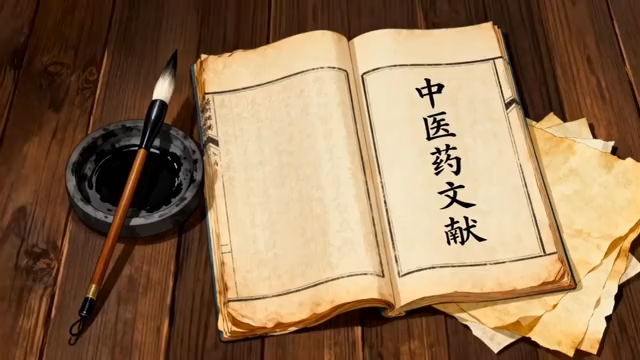 中医药文献